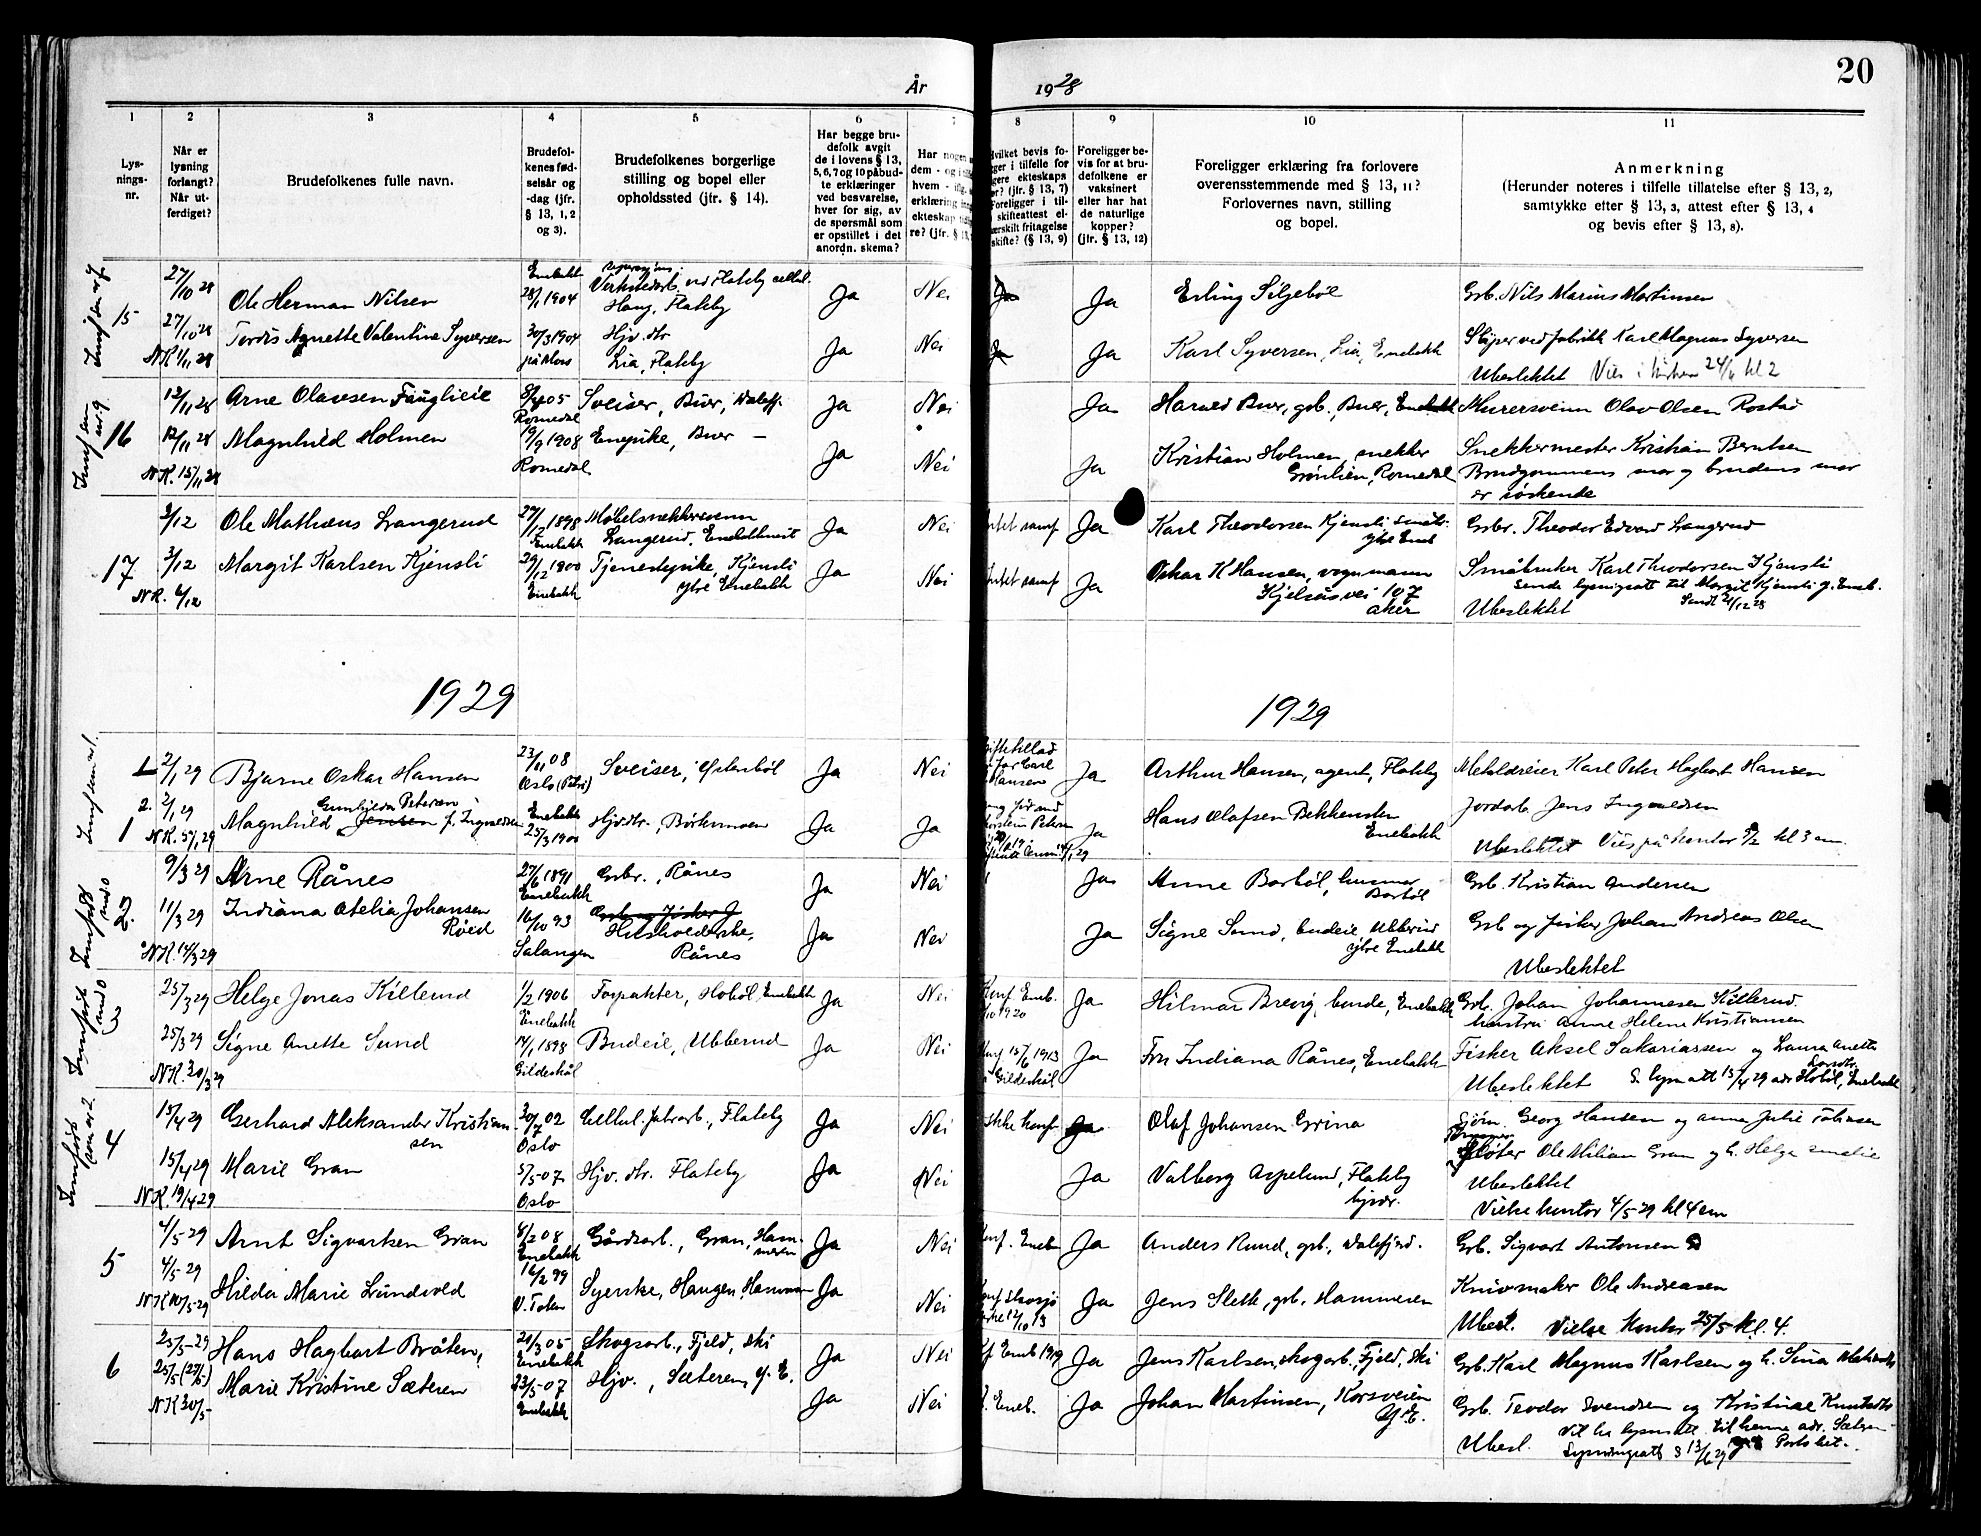 20
År
1928
1
2
3
4
5
6
7
8
9
10
11
Lys-
nings-
nr.
Når er
lysning
forlangt?
Når ut-
ferdiget?
Brudefolkenes fulle navn.
Brudefol-
kenes fød-
selsår og
-dag (jfr.
§ 13, 1, 2
og 3).
Brudefolkenes borgerlige
stilling og bopel eller
opholdssted (jfr. § 14).
Har begge bru-
defolk avgit
de i lovens § 13,
5, 6, 7 og 10 påbud-
te erklæringer
ved besvarelse,
hver for sig, av
de spørsmål som
er opstillet i det
anordn. skema?
Har nogen
dem - og i
hvem -
erklæring
ekteskap
re? (jfr. §
Hvilket bevis fo-
gger i tilfelle for
gere ekteskaps
r? (jfr. § 13, 7)
Foreligger i til-
skifteattest el-
ærskilt fritagelse
skifte? (§ 13, 9)
Foreligger be-
vis for at bru-
defolkene er
vaksinert
eller har hat
de naturlige
kopper?
(jfr. § 13, 12)
Foreligger erklæring fra forlovere
overensstemmende med § 13, 11?
Forlovernes navn, stilling
og bopel.
Anmerkning
(Herunder noteres i tilfelle tillatelse efter § 13, 2,
samtykke efter § 13, 3, attest efter § 13, 4
og bevis efter § 13, 8).
15
27/10 28 Ole Herman Nilsen Enebakk 28/1 1904 ved Flateby Haug, Flateby Ja Nei Ja Ja Erling Siljebøl Grb. Nils Marius Martinsen
27/10 28 Tordis Agnette Valentine Syversen 30/3 1904 på Moss Hjv. dtr Lia, Flateby Ja Nei Ja Karl Syversen, Lia, Enebakk Sliper ved fabrikk Karl Magnus Syversen
NK 1/11 28 Ubeslektet Vies i kirken 24/11 kl 2
16
12/11 28 Arne Olavesen Fauglieie 05 Romedal Sveiser, Buer, Dalefj. Ja Nei Ja Harald Buer, grb., Buer, Enebakk Murersvenn Olav Olsen Rostad
12/11 28 Magnhild Holmen 19/9 1908 Romedal Enepike, Buer — Ja Nei Ja Kristian Holmen, snekker Grønlien, Romedal Snekkermester Kristian Berntsen
NK. 15/11 28 Brudgommens mor og brudens mor
er søskende
17
3/12 Ole Mathæus Langerud 27/12 1898 Enebakk Møbelsnekkersvenn Langerud, Ja Nei Intet samf Ja Karl Theodorsen Kjensli småbr. Ytre Eneb Grbr. Theodor Edvard Langerud
3/12 Margit Karlsen Kjensli 29/12 1900 Enebakk Tjenestepike, Kjensli Ytre Enebakk Ja Nei Intet samf Ja Oskar K Hansen, vognmann Kjelsåsvei 107 Aker Småbruker Karl Theodorsen Kjensli
NK. 6/12 Sende lysingsatt til Margit Kjensli y. Eneb.
Ubeslektet Sendt 21/12 28
1929
1929
1
2/1 29 Bjarne Oskar Hansen 23/11 08 Oslo (Petri) Sveiser, Østenbøl Ja Nei Ja Arthur Hansen, agent, Flateby Metaldreier Karl Peter Hagbart Hansen
1
2/1 29 Magnhild Gunhilda Petersen Jensen f. Ingvaldsen Enebakk 25/3 1900 Hjv. dtr., Børkmoen Ja Ja Ja Hans Olafsen Bekkensten Enebakk Jordarb. Jens Ingvaldsen
NK. 5/1 29 Ubeslektet Vies på kontor 9/2 kl 3 em.
2
9/3 29 Arne Rånes 27/6 1891 Enebakk Grbr., Rånes Ja Nei Ja Anne Barbøl, husmor Barbøl Grb. Kristian Andersen
11/3 29 Indiana Otelia Johansen Røed 16/10 93 Salangen Husholderske, Rånes Ja Nei Ja Signe Sund, budeie Ubberud Ytre Enebakk Grb og fisker Johan Andreas Olsen
NK. 14/3 29 Ubeslektet
3
25/3 29 Helge Jonas Killerud 1/2 1906 Enebakk Forpakter, Hobøl, Enebakk Ja Nei Konf Eneb. 1920 Ja Hilmar Brevig, bonde, Enebakk Grb. Johan Johannesen Killerud.
hustru Anne Helene Kristiansen
25/3 29 Signe Anette Sund 14/1 1898 Gildeskål Budeie, Ubberud Ja Nei Konf 15/6 1913 i Gildeskål Ja Fru Indiana Rånes, Enebakk Fisker Aksel Sakariassen og Laura Anette
NK. 30/3 29 Ubeslektet S. lysn att 15/4 29 adr Hobøl, Enebakk
4
15/4 29 Gerhard Aleksander Kristiansen 30/7 02 Oslo Cellul. fabrarb., Flateby Ja Nei Ikke konf Ja Olaf Johansen Grina Georg Hansen og Anna Julie
15/4 29 Marie Gran 5/5-07 Oslo Hjv. dtr. Flateby Ja Nei Ja Valborg Aspelund, Flateby hjvdr. Fløter Ole Milian Gran og h. Helga
NK. 19/4 29 Ubeslektet
Vielse kontor 4/5-29 kl 4 em
5
4/5-29 Arnt Sigvartsen Gran 08 Enebakk Gårdsarb., Gran, Hammeren Ja Nei Konf. Eneb Ja Anders Rund, grb., Dalefjerd. Grb. Sigvart Antonsen
4/5-29 Hilda Marie Lundvold 16/2 99 V. Toten Syerske, Haugen, Hammeren Ja Nei Ja Jens Sletta, grb. Hammeren Knivmaker Ole Andreasen
NK 10/5-29 Ubesl. Vielse Kontor 25/5 kl. 4.
6
25/5-29 Hans Hagbart Bråten, 05 Enebakk Skogsarb., Fjeld, Ski Ja Nei Kf Eneb 1919 Ja Jens Karlsen, skogarb., Fjeld, Ski Grb. Karl Magnus Karlsen og h. Lina
25/5 (27/5) Marie Kristine Sæteren 23/5-07 Enebakk Hjv., Sæteren, y. E. Ja Nei Eneb. Ja Johan Martinsen, Korsveien Y. E. Grb. Teodor Svendsen og Kristine
NK 30/5- Ubesl. til henne adr.
Lysningsatt s 13/6 29